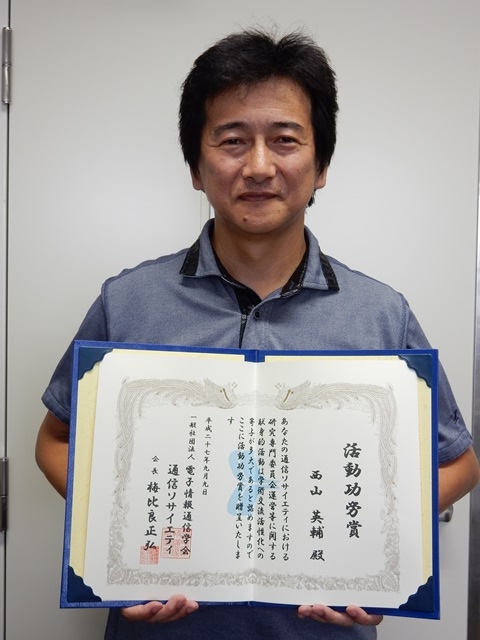 活動功労賞
西山 英輔 殿
あなたの通信ソサイエティにおける
研究専門委員会運営等に関する
献身的活動は学術交流活性化への
寄与が多大であると認めますので
ここに活動功労賞を贈呈いたしま
す
平成二十七年九月九日
一般社団法人 電子情報通信学会
通信ソサイエティ
会長 梅比良正弘